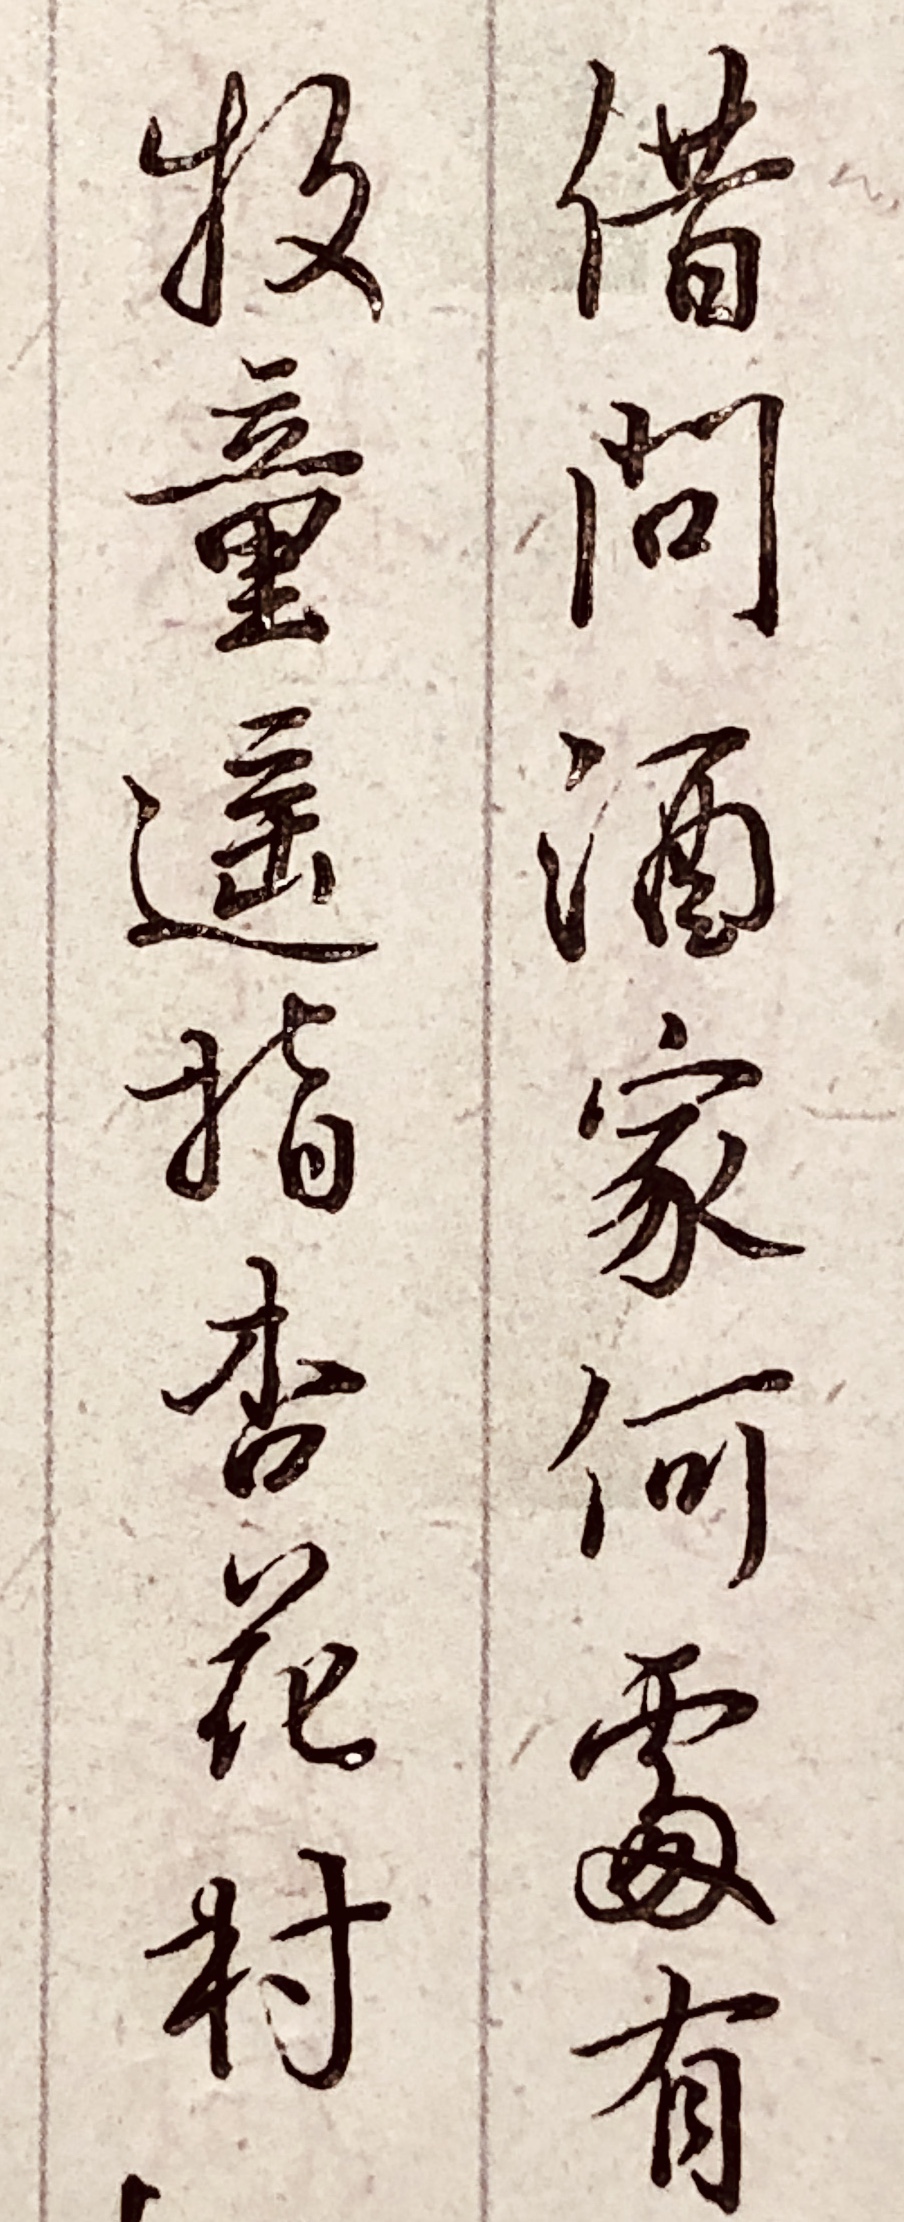 借問酒家何處有
牧童遥指杏花村